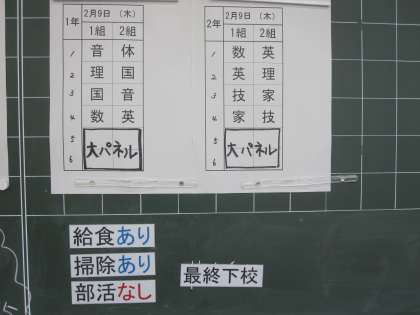 1年 2月9日 (木)
1組 2組
1 音 体
2 理 国
3 国 音
4 数 英
5
6
大パネル
2年 2月9日 (木)
1組 2組
1 数 英
2 英 理
3 技 家
4 家 技
5
6
大パネル
給食あり
掃除あり
部活なし
最終下校